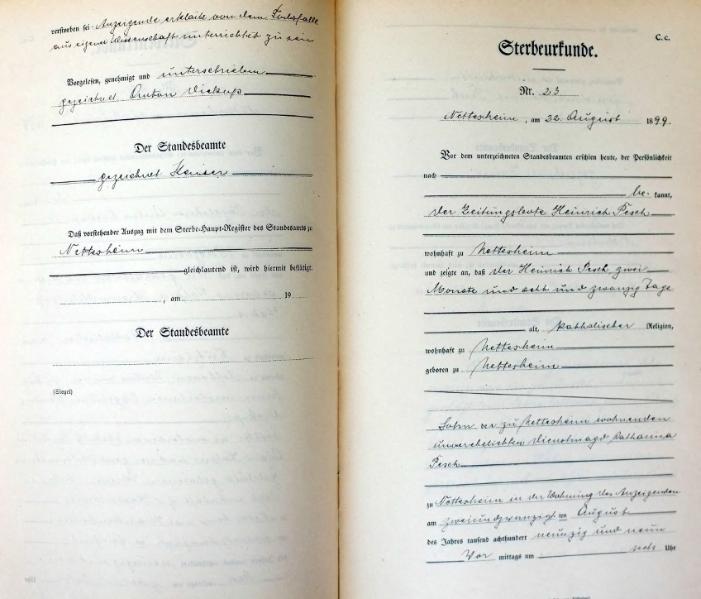 verstorben sei. Anzeigende erklärte von dem Todesfalle
aus eigener Wissenschaft unterrichtet zu sein
Vorgelesen, genehmigt und unterschrieben
gezeichnet Anton
Der Standesbeamte
gezeichnet
Daß vorstehender Auszug mit dem Sterbe-Haupt-Register des Standesamts zu
Nettesheim
gleichlautend ist, wird hiermit bestätigt.
, am 19
Der Standesbeamte
(Siegel)
C. c.
Sterbeurkunde.
Nr. 23
Nettesheim, am 22. August 1899.
Vor dem unterzeichneten Standesbeamten erschien heute, der Persönlichkeit
nach
be kannt,
der Zeitungsbote Heinrich Pesch
wohnhaft zu Nettesheim
und zeigte an, daß der Heinrich Pesch zwei
Monate und acht und zwanzig Tage
alt, katholischer Religion,
wohnhaft zu Nettesheim
geboren zu Nettesheim
Sohn der zu Nettesheim wohnenden
unverehelichten Dienstmagd Katharina
Pesch
zu Nettesheim in der Wohnung des Anzeigenden
am zweiundzwanzigsten August
des Jahres tausend achthundert neunzig und neun
Vor mittags um sechs Uhr